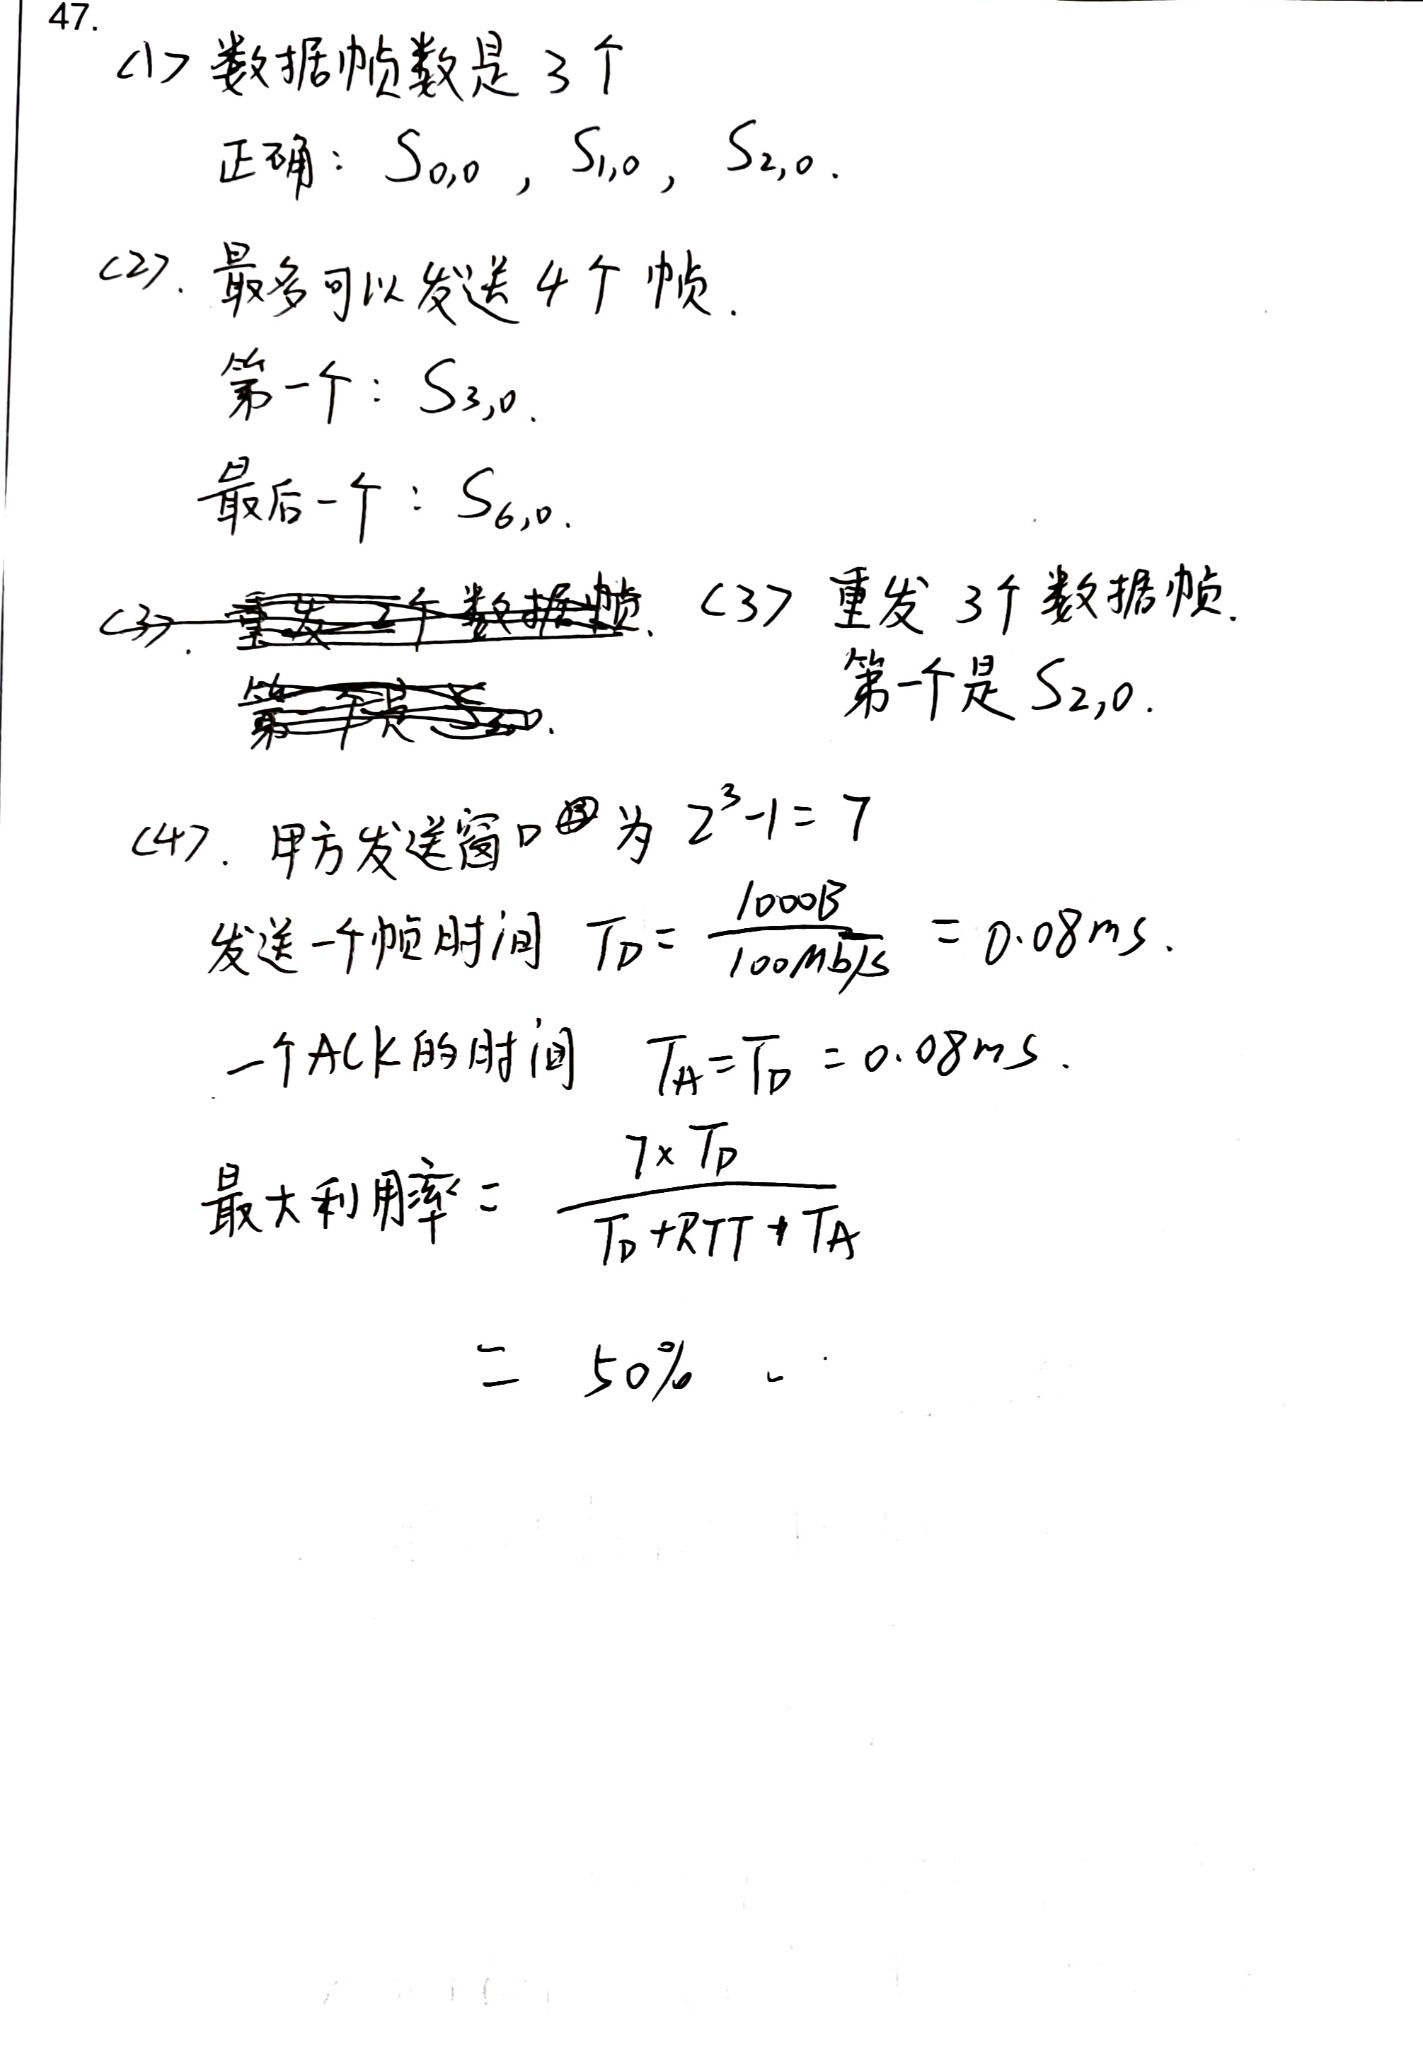 47.
<1> 数据帧数是 3个
正确: S0,0 , S1,0 , S2,0 .
<2>. 最多可以发送 4个 帧.
第一个: S3,0.
最后一个: S6,0.
<3>. 重发 2个数据帧.
第一个是
<3> 重发 3个 数据帧.
第一个是 S2,0.
<4>. 甲方发送窗口 为 2³-1=7
发送一个帧时间 TD = 1000B / 100Mb/s = 0.08ms.
一个ACK的时间 TA=TD = 0.08ms.
最大利用率 = 7×TD / TD+RTT+TA
= 50% .